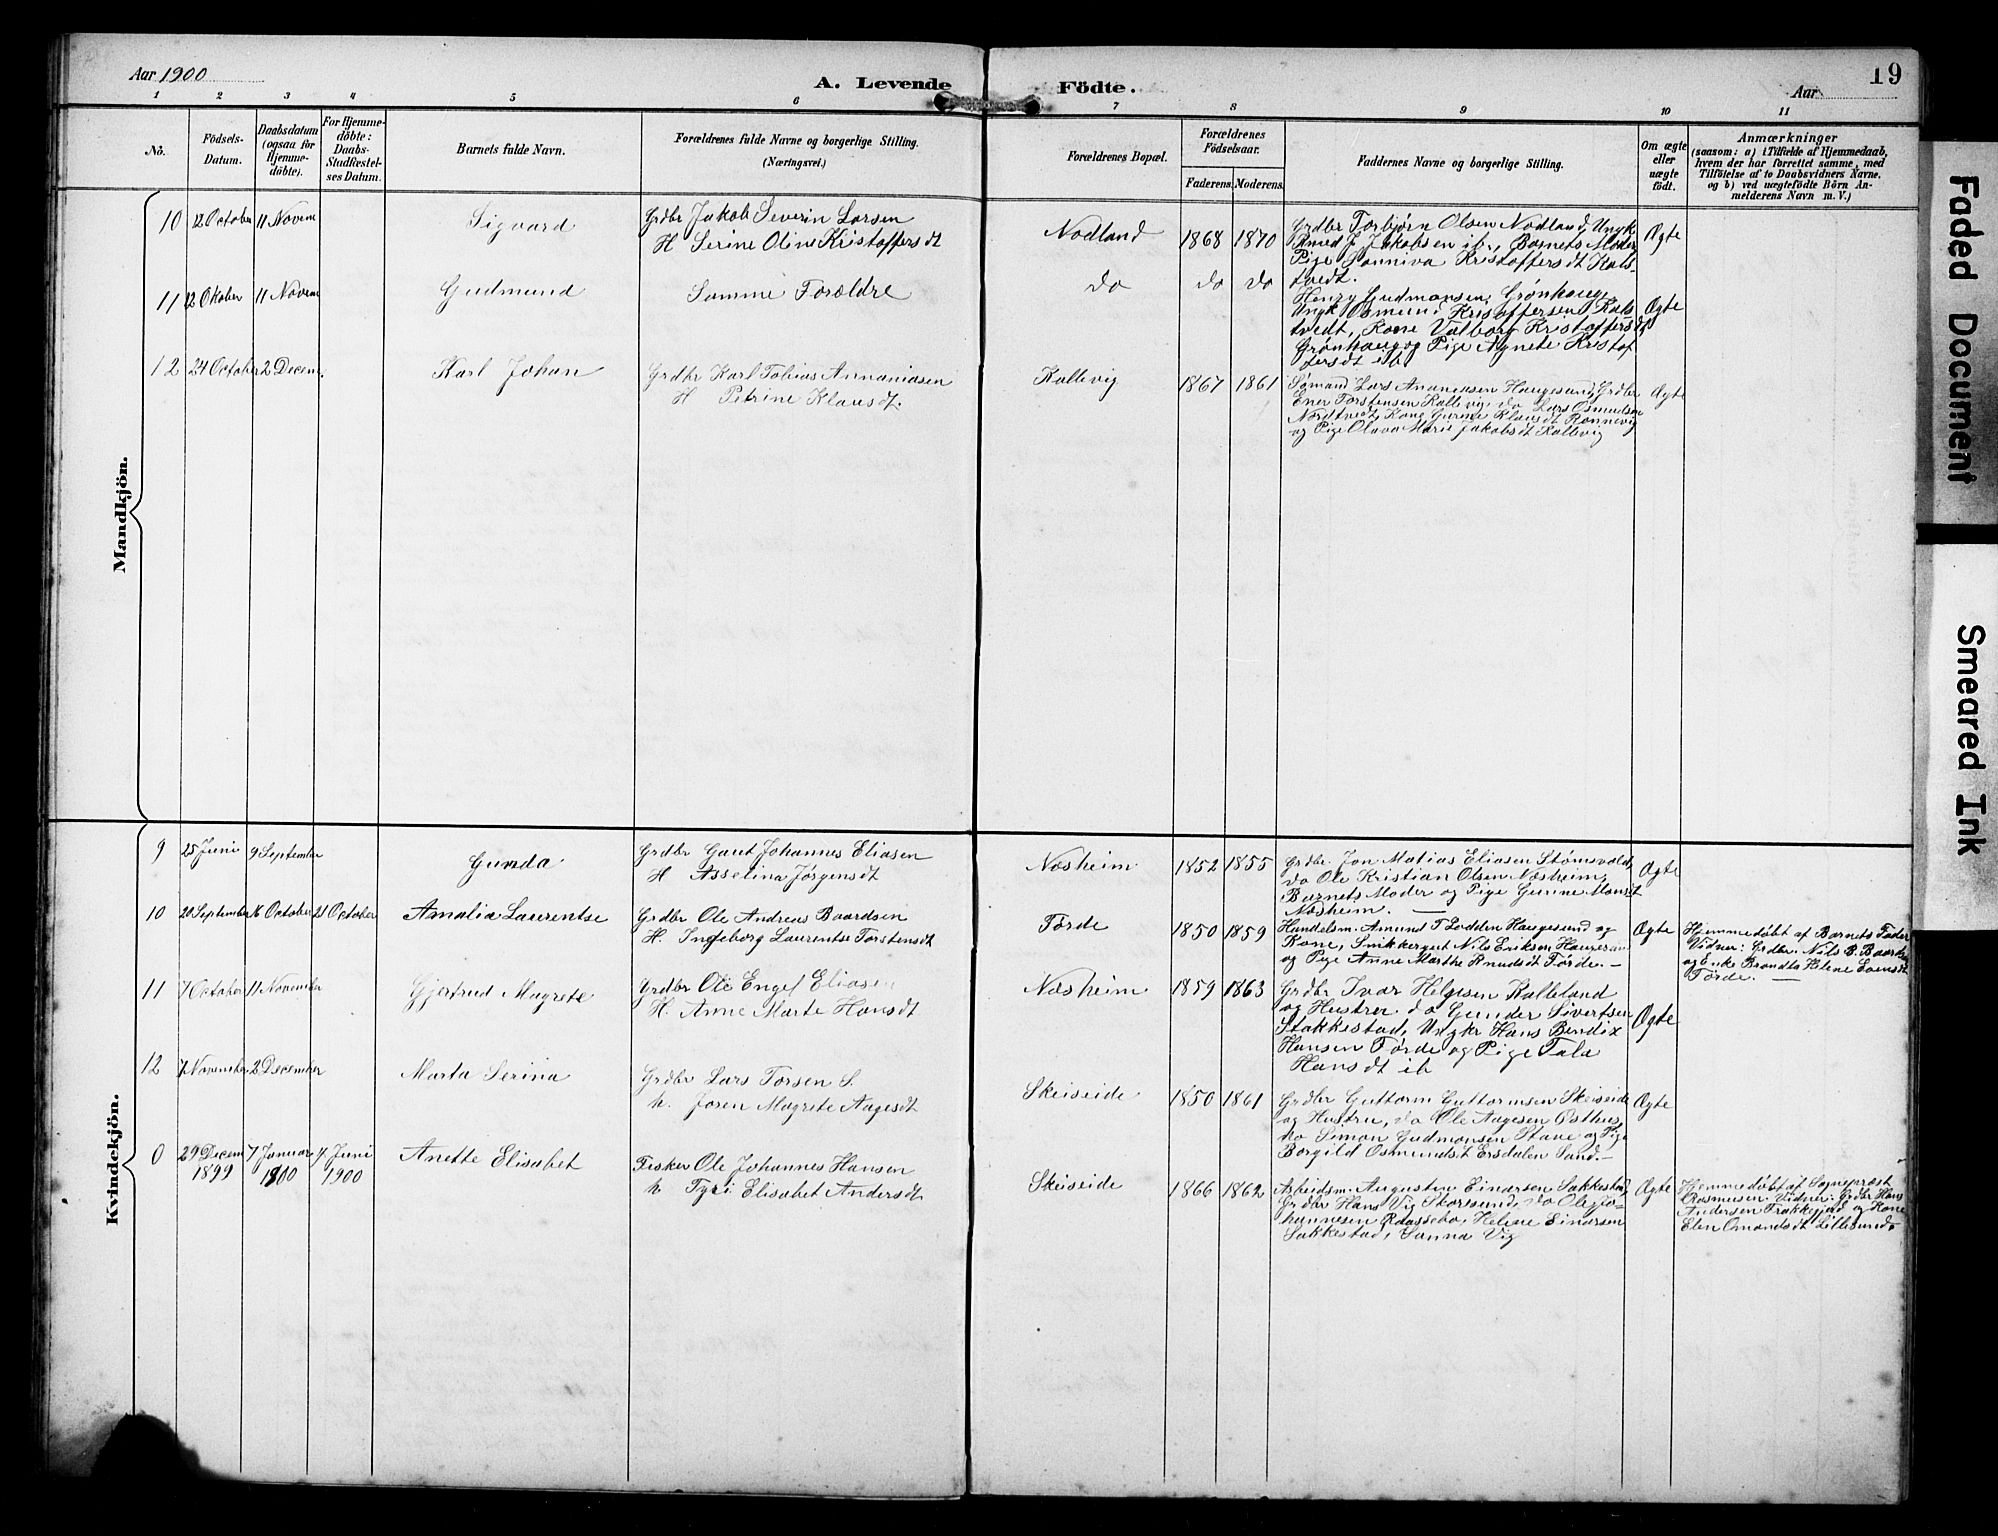 Aar 1900
A. Levende Födte.
19
Aar
1 2 3 4 5 6 7 8 9 10 11
No.
Födsels-
Datum.
Daabsdatum
(ogsaa för
Hjemme-
döbte).
For Hjemme-
döbte:
Daabs-
Stadfæstel-
ses Datum.
Barnets fulde Navn.
Forældrenes fulde Navne og borgerlige Stilling.
(Næringsvei.)
Forældrenes Bopæl.
Forældrenes
Födselsaar.
Faderens. Moderens.
Faddernes Navne og borgerlige Stilling.
Om ægte
eller
uægte
födt.
Anmærkninger
(saasom: a) i Tilfælde af Hjemmedaab,
hvem der har forrettet samme, med
Tilföielse af to Daabsvidners Navne.
og b) ved uægtefödte Börn An-
melderens Navn m. V.)
Mandkjön.
10 12 October 11 Novem Sigvard
Grdbr Jakob Severin Larsen
H Serine Oline Kristoffersdt
Nodland 1868 1870
Grdbr Torbjørn Olsen Nodland, Ungk
J. Jakobsen ib., Barnets Moder
Pige Sanniva Kristoffersdt Kals-
tvedt.
Ægte
11 12 Okober 11 Novem Gudmund
Samme Forældre
do do do
Henry Gudmonsen Grønhaug
Ungk Osmund Kristoffersen Kals
tvedt, Kone Valborg Kristoffersdt
Grønhaug og Pige Agnete Kristof
fersdt ib
Ægte
12 24 October 2 Decem. Karl Johan
Grdbr Karl Tobias Annaniasen
H Petrine Klausdt.
Kallevig 1867 1861
Sømand Lars Ananiasen Haugesund, Grdbr
Ener Torstensen Kallevig, do Lars Osmundsen
Nordtvedt, Kone Gurine Klausdt Rønnevig
og Pige Olava Marie Jakobsdt Kallevig
Ægte
Kvindekjön.
9 25 Juni 9 September Gunda
Grdbr Gaut Johannes Eliasen
H Asselina Jørgensdt
Næsheim 1852 1855
Grdbr. Jon Matias Eliasen Stømsvold,
do Ole Kristian Olsen Næsheim,
Barnets Moder og Pige Gunine Hansdt
Næsheim. —
Ægte
10 20 September 6 October 21 October Amalia Laurentse
Grdbr Ole Andreas Baardsen
H. Ingeborg Laurentse Torstensdt
Førde 1850 1859
Handelsm. Amund T Lodden Haugesund og
Kone, Snikkergut Nils Eriksen Haugesund
og Pige Anne Marthe Knudsdt Førde. —
Ægte
Hjemmedøbt af Barnets Fader
Vidner: Grdbr. Nils B. Baards
og Enke Brandta Helene
Førde. —
11 7 October 11 November Gjertrud Magrete
Grdbr Ole Engel Eliasen
H. Anne Marte Hansdt
Næsheim 1859 1863
Grdbr Ivar Helgesen Kalleland
og Hustru. do Gunder Sivertsen
Stakkestad, Ungkr Hans Bendix
Hansen Førde og Pige Tala
Hansdt ib
Ægte
12 7 November 2 December Marta Serina
Grdbr Lars Torsen S.
h. Joren Magrete Aagesdt
Skeiseide 1850 1861
Grdbr Guttorm Guttormsen Skeiseide
og Hustru, do Ole Aagesen Østhus,
do Simon Gudmonsen Stave og Pige
Borgild Osmundsdt Ersdalen Sund. —
Ægte
0 29 Decem 7 Januar 4 Juni Anette Elisabet
1899 1900 1900
Fisker Ole Johannes Hansen
h Tyri Elisabet Andersdt
Skeiseide 1866 1862
Arbeidsm. Augustin Einarsen Sakkestad,
Grdbr Hans Vig Storesund, do Ole Jo-
hannesen Raassebø, Helene Einarsen
Sakkestad, Sanna Vig
Ægte
Hjemmedøbt af Sognepræst
Rasmusen. Vidner: Grdbr Hans
Andersen Trækkejad og Kone
Elen Omondsdt Lillesund.
Faded Document
Smeared Ink